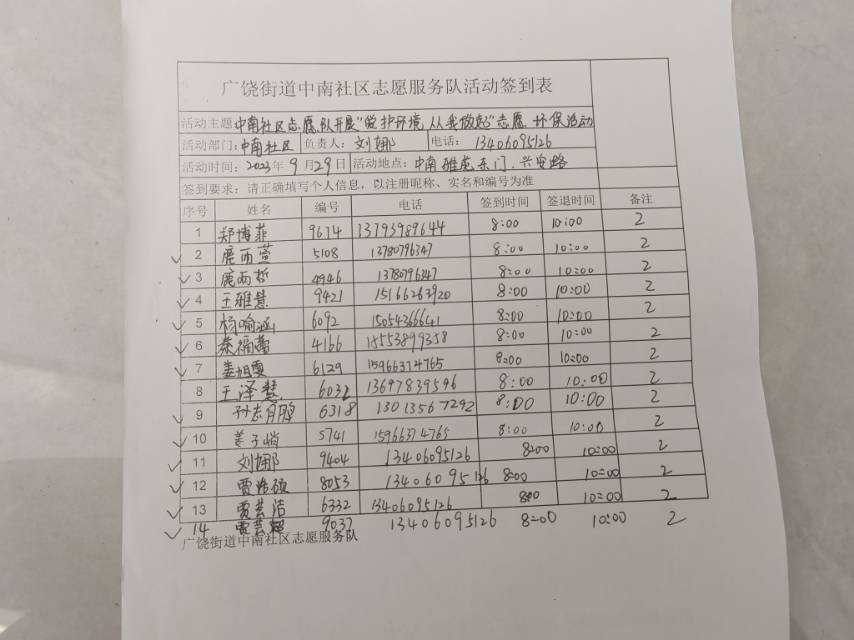 广饶街道中南社区志愿服务队活动签到表
活动主题：中南社区志愿队开展"爱护环境，从我做起"志愿环保活动
活动部门：中南社区 负责人：刘娜 电话：13406095126
活动时间：2023年9月29日 活动地点：中南雅苑东门，兴安路
签到要求：请正确填写个人信息，以注册昵称、实名和编号为准
序号 姓名 编号 电话 签到时间 签退时间 备注
1 郑博菲 9674 13793989644 8:00 10:00 2
2 鹿雨萱 5108 13780796347 8:00 10:00 2
3 鹿雨哲 4946 13780796347 8:00 10:00 2
4 王雅慧 9421 15166263920 8:00 10:00 2
5 杨喻涵 6092 15054366641 8:00 10:00 2
6 秦福蕾 4166 15553899358 8:00 10:00 2
7 6129 15966374765 8:00 10:00 2
8 王泽慧 6032 13697839596 8:00 10:00 2
9 孙志鹏 6318 13013567292 8:00 10:00 2
10 姜子恒 5741 15966374765 8:00 10:00 2
11 刘娜 9404 13406095126 8:00 10:00 2
12 贾浩硕 8053 13406095126 8:00 10:00 2
13 贾芸洁 6332 13406095126 8:00 10:00 2
14 贾芸超 9037 13406095126 8:00 10:00 2
广饶街道中南社区志愿服务队